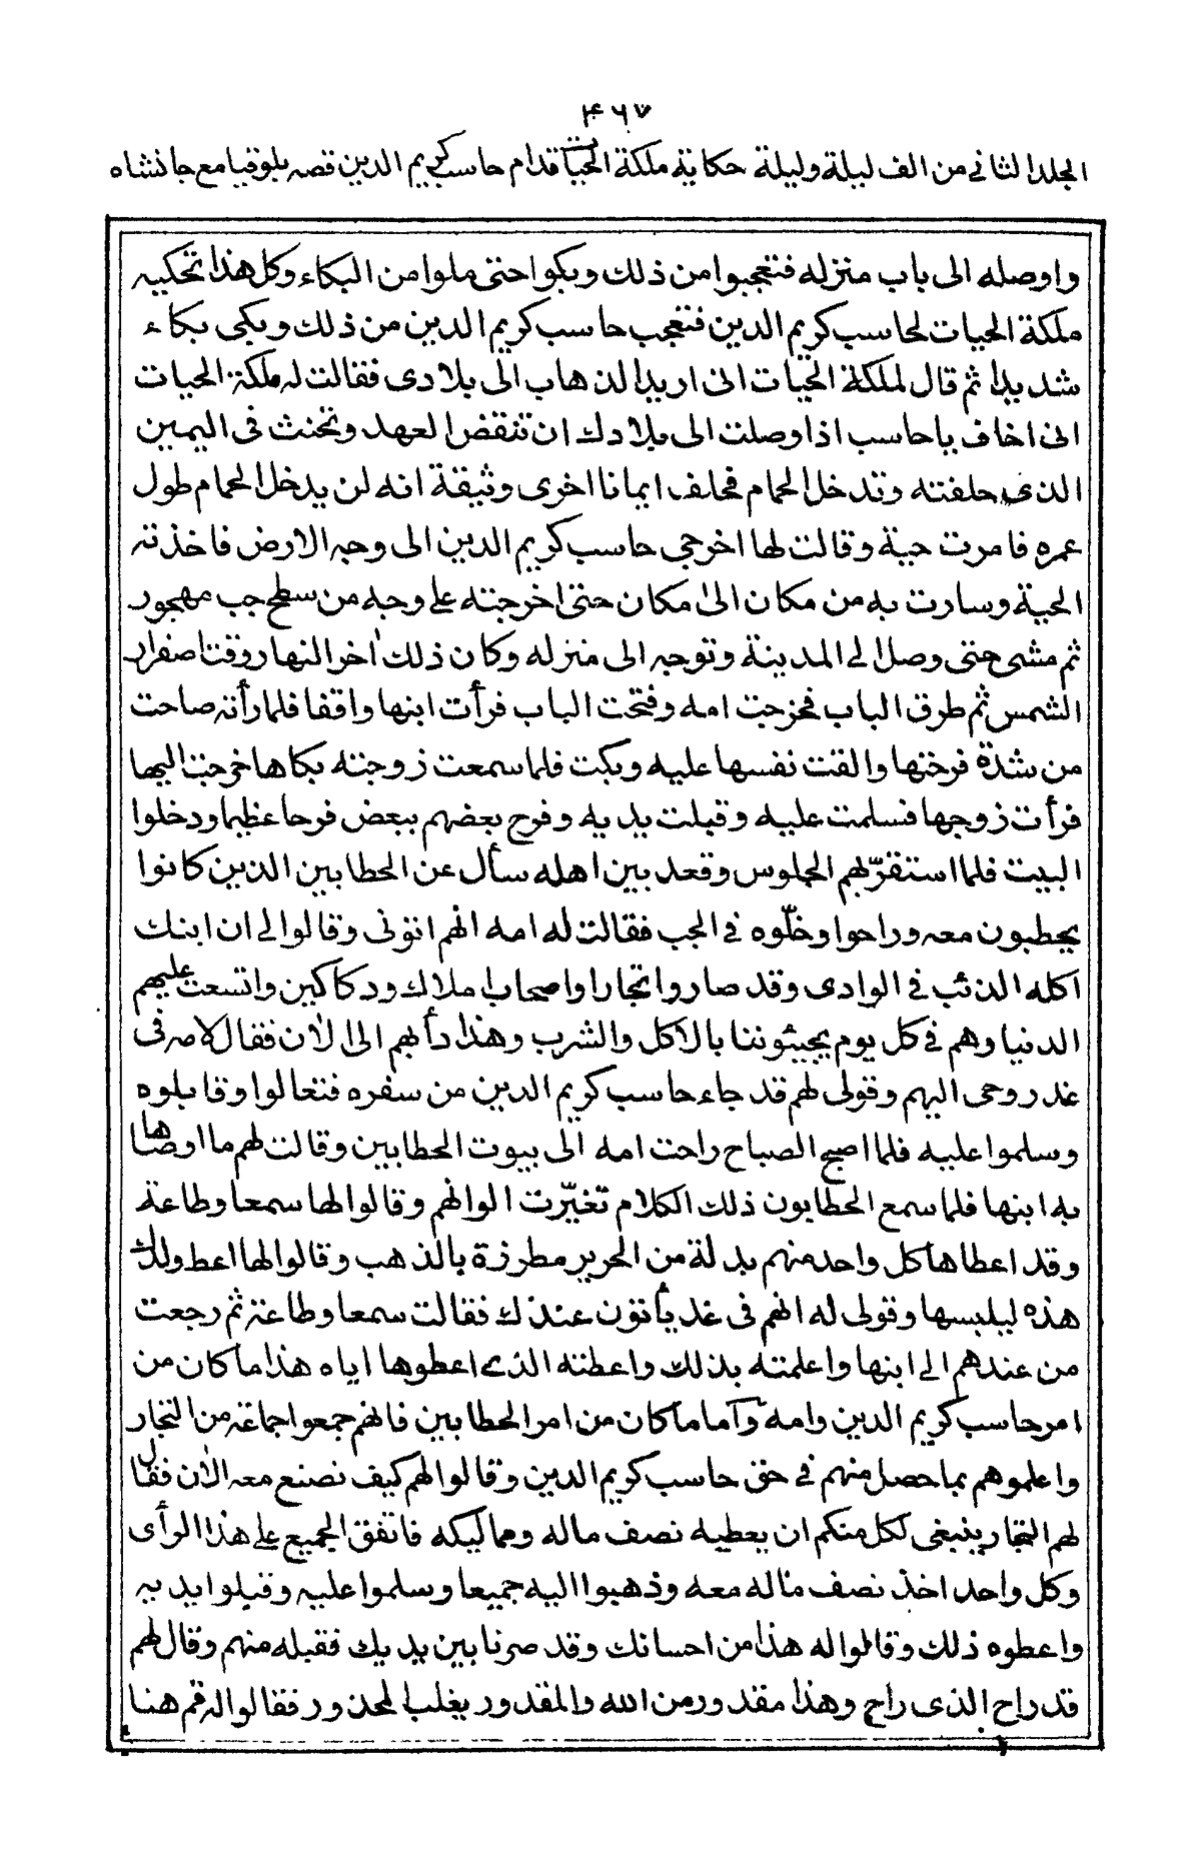 ۴۶۷
الجلد الثاني من الف ليلة وليلة حكاية ملكة الحيات قدام حاسب كريم الدين قصه بلوقيا مع جانشاه
واوصله الى باب منزله فتعجبوا من ذلك وبكوا حتى ملوا من البكاء وكل هذا تحكيه
ملكة الحيات لحاسب كريم الدين فتعجب حاسب كريم الدين من ذلك وبكى بكاء
شديدا ثم قال لملكة الحيات انى اريد الذهاب الى بلادى فقالت له ملكة الحيات
انى اخاف ياحاسب اذا وصلت الى بلادك ان تنقض العهد وتحنث فى اليمين
الذى حلفته وتدخل الحمام فحلف ايمانا اخرى وثيقة انه لن يدخل الحمام طول
عمره فامرت حية وقالت لها اخرجى حاسب كريم الدين الى وجه الارض فاخذته
الحية وسارت به من مكان الى مكان حتى اخرجته على وجه من سطح جب مهجور
ثم مشى حتى وصل الے المدينة وتوجه الى منزله وكان ذلك آخر النهار وقت اصفرار
الشمس ثم طرق الباب فخرجت امه وفتحت الباب فرأت ابنها واقفا فلما رأته صاحت
من شدة فرحتها والقت نفسها عليه وبكت فلما سمعت زوجته بكاها خرجت اليها
فرأت زوجها فسلمت عليه وقبلت يديه وفرح بعضهم ببعض فرحا عظيما ودخلوا
البيت فلما استقرّ بهم الجلوس وقعد بين اهله سأل عن الحطابين الذين كانوا
يحطبون معه وراحوا وخلّوه في الجب فقالت له امه انهم اتونى وقالوا لے ان ابنك
اكله الذئب في الوادى وقد صاروا تجارا واصحاب املاك ودكاكين واتسعت عليهم
الدنيا وهم في كل يوم يجيئوننا بالاكل والشرب وهذا دأبهم الى الآن فقال لامه فى
غد روحى اليهم وقولى لهم قد جاء حاسب كريم الدين من سفره فتعالوا وقابلوه
وسلموا عليه فلما اصبح الصباح راحت امه الى بيوت الحطابين وقالت لهم ما اوصاها
به ابنها فلما سمع الحطابون ذلك الكلام تغيّرت الوانهم وقالوا لها سمعا وطاعة
وقد اعطاها كل واحد منهم بدلة من الحرير مطرزة بالذهب وقالوا لها اعط ولدك
هذه ليلبسها وقولى له انهم فى غد يأتون عندك فقالت سمعا وطاعة ثم رجعت
من عندهم الے ابنها واعلمته بذلك واعطته الذے اعطوها اياه هذا ما كان من
امر حاسب كريم الدين وامه وآما ما كان من امر الحطابين فانهم جمعوا جماعة من التجار
واعلموهم بما حصل منهم في حق حاسب كريم الدين وقالوا لهم كيف نصنع معه الآن فقال
لهم التجار ينبغى لكل منكم ان يعطيه نصف ماله ومماليكه فاتفق الجميع على هذا الرأى
وكل واحد اخذ نصف ماله معه وذهبوا اليه جميعا وسلموا عليه وقبلوا يديه
واعطوه ذلك وقالوا له هذا من احسانك وقد صرنا بين يديك فقبله منهم وقال لهم
قد راح الذى راح وهذا مقدور من الله والمقدور يغلب المحذور فقالوا له قم هنا